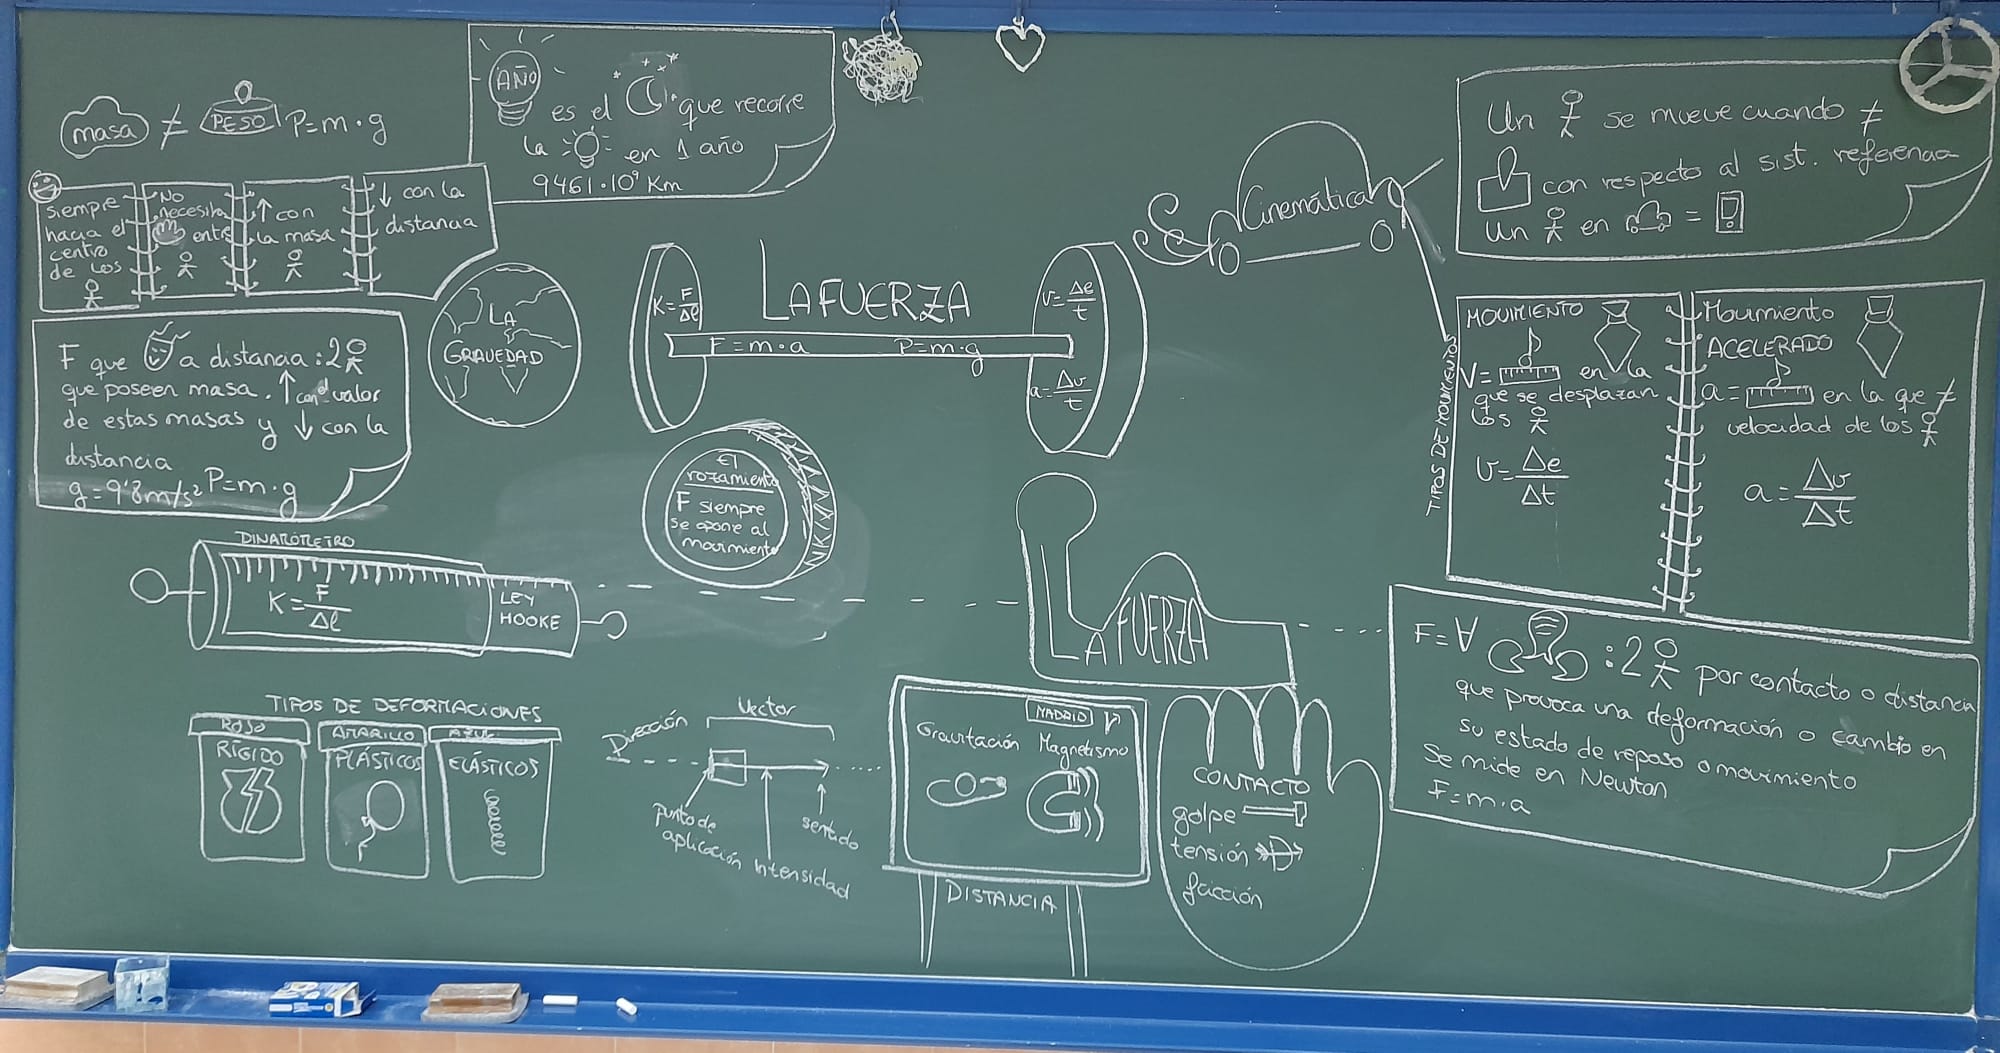 masa ≠ PESO P=m·g
AÑO
es el que recorre
la en 1 año
9461·10⁹ Km
siempre
hacia el
centro
de los
No
necesita
entre
↑ con
la masa
↓ con la
distancia
F que a distancia: 2
que poseen masa. ↑ con el valor
de estas masas y ↓ con la
distancia
g=9'8m/s² P=m·g
LA
GRAVEDAD
LA FUERZA
K=F/Δl
F=m·a P=m·g
v=Δe/t
a=Δv/t
El
rozamiento
F siempre
se opone al
movimiento
Cinemática
Un se mueve cuando ≠
con respecto al sist. referencia
Un en =
TIPOS DE MOVIMIENTOS
MOVIMIENTO
V= en la
que se desplazan
los
v=Δe/Δt
Movimiento
ACELERADO
a= en la que ≠
velocidad de los
a=Δv/Δt
DINAMÓMETRO
K=F/Δl
LEY
HOOKE
LA FUERZA
F=∀ :2 por contacto o distancia
que provoca una deformación o cambio en
su estado de reposo o movimiento
Se mide en Newton
F=m·a
TIPOS DE DEFORMACIONES
ROJO
RÍGIDO
AMARILLO
PLÁSTICOS
AZUL
ELÁSTICOS
Vector
Dirección
punto de
aplicación
intensidad
sentido
MADRID
Gravitación Magnetismo
DISTANCIA
CONTACTO
golpe
tensión
fricción